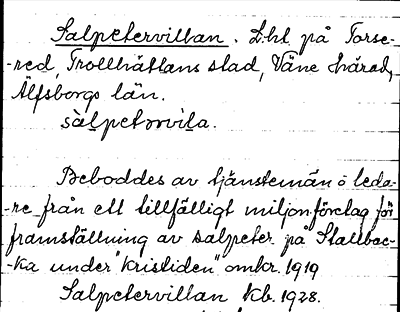 Salpetervillan. Lht på Torse-
-red, Trollhättans stad, Väne härad,
Älfsborgs län.
sàlpetərvìla.
Beboddes av tjänstemän o leda-
-re från ett tillfälligt miljonföretag för
framställning av salpeter på Stallbac-
-ka under "kristiden" omkr. 1919
Salpetervillan kb. 1928.